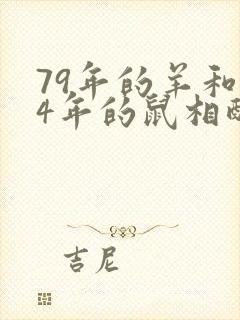 79年的羊和
4年的鼠相
吉尼